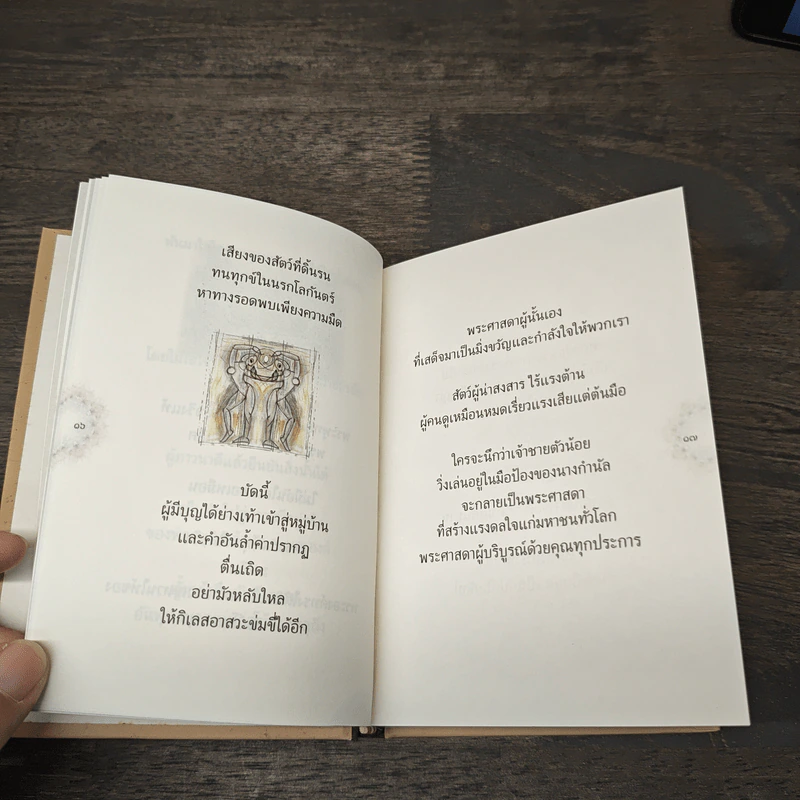 เสียงของสัตว์ที่ดิ้นรน
ทนทุกข์ในนรกโลกันตร์
หาทางรอดพบเพียงความมืด
๑๖
บัดนี้
ผู้มีบุญได้ย่างเท้าเข้าสู่หมู่บ้าน
และคำอันล้ำค่าปรากฏ
ตื่นเถิด
อย่ามัวหลับใหล
ให้กิเลสอาสวะข่มขี่ได้อีก
พระศาสดาผู้นั้นเอง
ที่เสด็จมาเป็นมิ่งขวัญและกำลังใจให้พวกเรา
สัตว์ผู้น่าสงสาร ไร้แรงต้าน
ผู้คนดูเหมือนหมดเรี่ยวแรงเสียแต่ต้นมือ
๑๗
ใครจะนึกว่าเจ้าชายตัวน้อย
วิ่งเล่นอยู่ในมือป้องของนางกำนัล
จะกลายเป็นพระศาสดา
ที่สร้างแรงดลใจแก่มหาชนทั่วโลก
พระศาสดาผู้บริบูรณ์ด้วยคุณทุกประการ